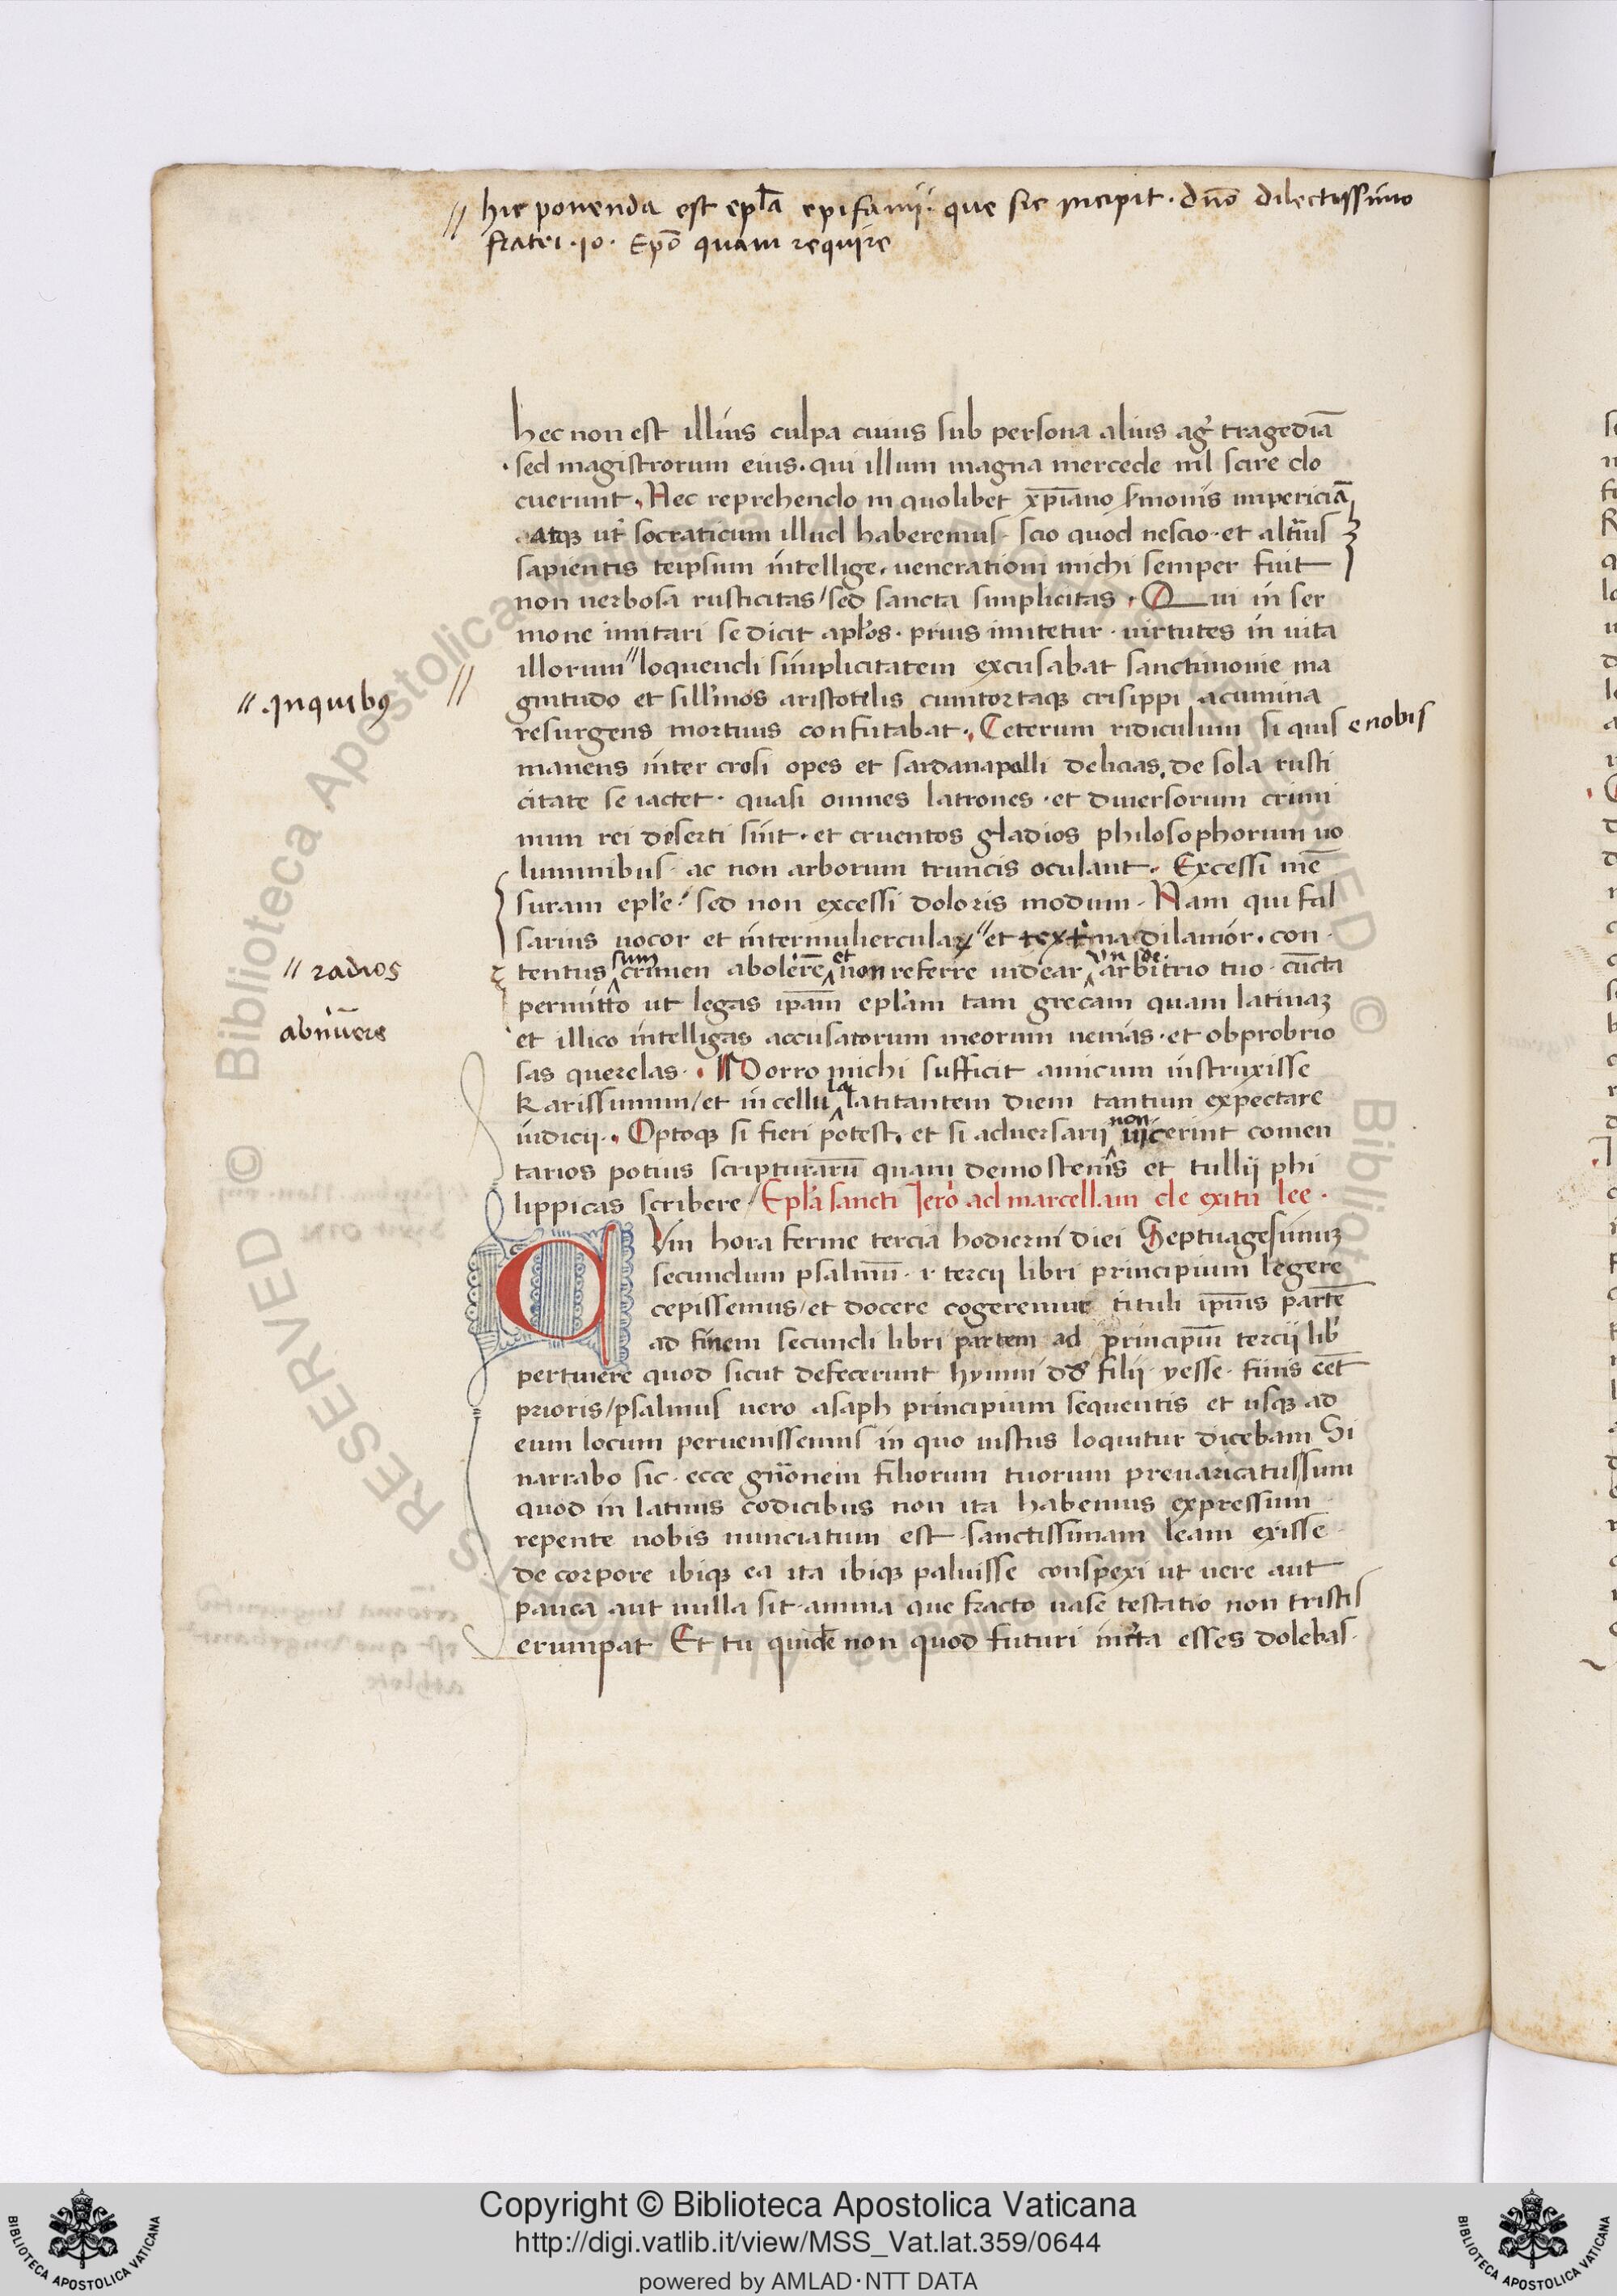 // hic ponenda est epl̄a epifanij. que sic incipit. dn̄o dilectissimo
fratri. io. Ep̄o quam require
hec non est illius culpa cuius sub persona alius agr̄ tragediā
sed magistrorum eius. qui illum magna mercede nil scire do
cuerunt. Nec reprehendo in quolibet xp̄iano s̄monis impericiā
atqꝫ ut̄ socraticum illud haberemus. scio quod nescio. et alt̄ius
sapientis teipsum intellige. venerationi michi semper fuit
non uerbosa rusticitas / sed sancta simplicitas. Qui in ser
mone imitari se dicit apl̄os. prius imitetur. uirtutes in uita
illorum // loquendi simplicitatem excusabat sanctimonie ma
// .In quibus
gnitudo et sill'mos aristotilis cumtortaqꝫ crisippi acumina
resurgens mortuus confutabat. Ceterum ridiculum si quis e nobis
manens inter cresi opes et sardanapalli delicias. de sola rusti
citate se iactet. quasi omnes latrones. et diuersorum crimi
num rei diserti sint. et cruentos gladios philosophorum uo
luminibus. ac non arborum truncis oculant. Excessi mē
suram epl̄e. sed non excessi doloris modum. Nam qui fal
sarius uocor et inter muliercularꝫ // et
dilamor. con
// radios
tentus sum crimen abolere et non referre uidear Vn de arbitrio tuo. cūcta
permitto ut legas ip̄am epl̄am tam grecam quam latinaꝫ
abnuere
et illico intelligas accusatorum meorum nenias. et obprobrio
sas querelas. Porro michi sufficit amicum instruxisse
Karissimum / et in cellu la latitantem diem tantum expectare
iudicij. Optoqꝫ si fieri potest. et si aduersarij non uicerint comen
tarios potius scripturarū quam demostenis et tullij phi
lippicas scribere / Epl̄a sancti Jero ad marcellam de exitu lee.
CVm hora ferme tercia hodierni diei Septuagesimuꝫ
secundum psalmū. i tercij libri principium legere
cepissemus / et docere cogeremur tituli ip̄ius partē
ad finem secundi libri partem ad principiū tercij libr̄
pertinere quod sicut defecerunt hymni dd̄ filij yesse. finis eēt
prioris / psalmus uero asaph principium sequentis et usqꝫ ad
eum locum peruenissemus in quo iustus loquitur dicebam Si
narrabo sic. ecce gn̄onem filiorum tuorum preuaricatus sum
quod in latinis codicibus non ita habemus expressum
repente nobis nunciatum est. sanctissimam leam exisse
de corpore ibiqꝫ ea ita ibiqꝫ paluisse conspexi ut uere aut
pauca aut nulla sit. anima que fracto uase testatio non tristis
erumpat Et tu quidē non quod futuri inc̄ta esses dolebas.
Copyright © Biblioteca Apostolica Vaticana
http://digi.vatlib.it/view/MSS_Vat.lat.359/0644
powered by AMLAD·NTT DATA
BIBLIOTECA APOSTOLICA VATICANA
BIBLIOTECA APOSTOLICA VATICANA